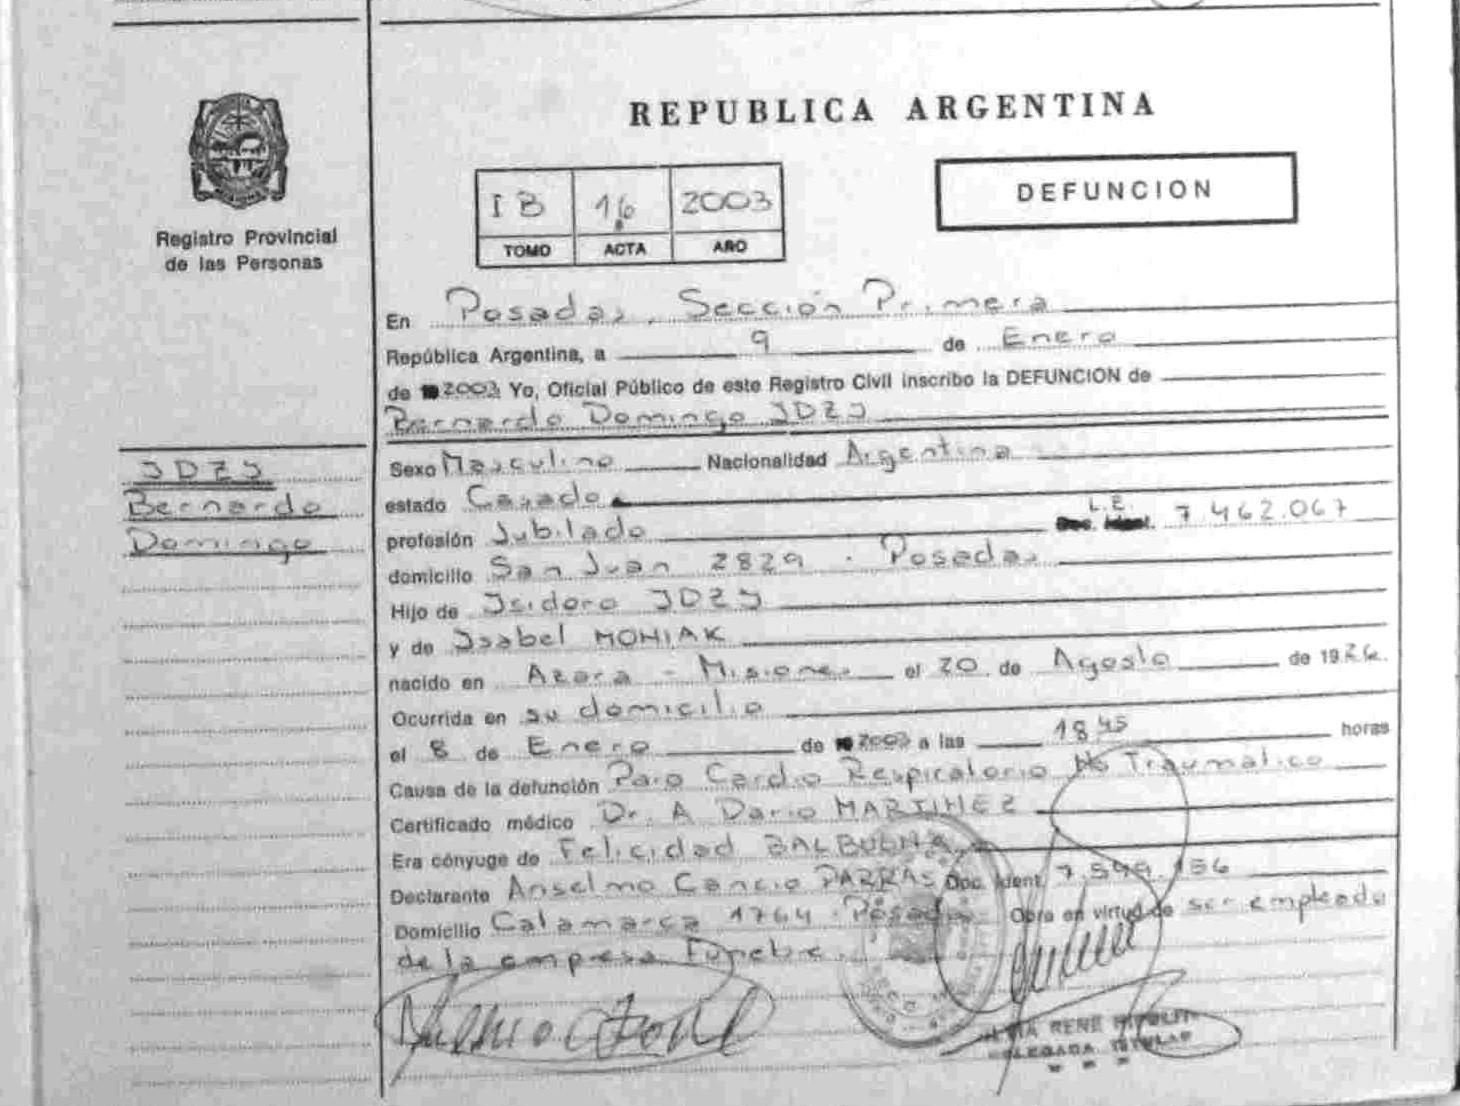 REPUBLICA ARGENTINA
DEFUNCION
IB 16 2003
TOMO ACTA AÑO
Registro Provincial
de las Personas
En Posadas, Sección Primera
República Argentina, a 9 de Enero
de 2003 Yo, Oficial Público de este Registro Civil inscribo la DEFUNCION de
Bernardo Domingo IDZI
IDZI
Bernardo
Domingo
Sexo Masculino Nacionalidad Argentina
estado Casado
profesión Jubilado L.E. 7.462.067
domicilio San Juan 2829 - Posadas
Hijo de Isidoro IDZI
y de Isabel MONIAK
nacido en Azara - Misiones el 20 de Agosto de 1926
Ocurrida en su domicilio
el 8 de Enero de 2003 a las 18 45 horas
Causa de la defunción Paro Cardio Respiratorio No Traumatico
Certificado médico Dr. A Dario MARTINEZ
Era cónyuge de Felicidad BALBUENA
Declarante Anselmo Cancio PARRAS Doc. Ident. 7.599.156
Domicilio Catamarca 1764 - Posadas Obra en virtud de ser empleado
de la empresa Funebre.
RENE
DELEGADA TITULAR